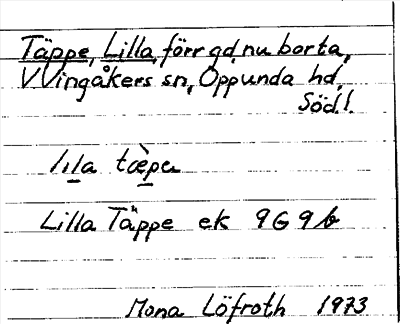 Täppe, Lilla, förr gd, nu borta,
V Vingåkers sn, Oppunda hd,
Södl.
lıla tæ̀pa
Lilla Täppe ek 9G 9b
Mona Löfroth 1973